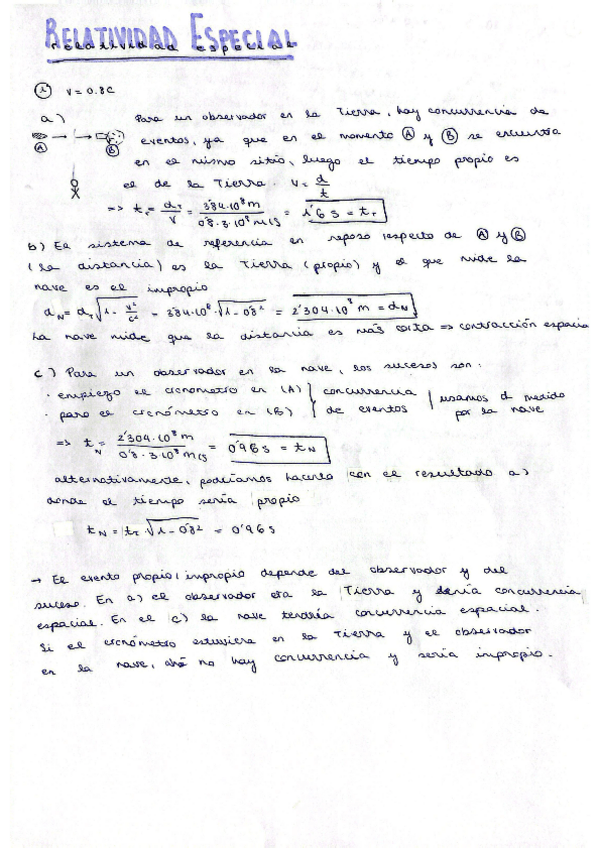 RELATIVIDAD ESPECIAL
relatividad especial
① v = 0.8c
a) Para un observador en la Tierra, hay concurrencia de
eventos, ya que en el momento Ⓐ y Ⓑ se encuentra
Ⓐ Ⓑ
en el mismo sitio, luego el tiempo propio es
el de la Tierra. v = d/t
=> t_T = d_T/v = 3'84·10⁸ m / 0'8·3·10⁸ m/s = 1'6 s = t_T
b) El sistema de referencia en reposo respecto de Ⓐ y Ⓑ
(la distancia) es la Tierra (propio) y el que mide la
nave es el impropio
d_N = d_T √(1 - v²/c²) = 3'84·10⁸ · √(1 - 0'8²) = 2'304·10⁸ m = d_N
La nave mide que la distancia es más corta => contracción espacia
c) Para un observador en la nave, los sucesos son:
· empiezo el cronometro en (A) } concurrencia | usamos d medido
· paro el cronómetro en (B) } de eventos | por la nave
=> t_N = 2'304·10⁸ m / 0'8·3·10⁸ m/s = 0'96 s = t_N
alternativamente, podríamos hacerlo con el resultado a)
donde el tiempo sería propio
t_N = t_T · √(1 - 0'8²) = 0'96 s
→ El evento propio/impropio depende del observador y del
suceso. En a) el observador era la Tierra y tenía concurrencia
espacial. En el c) la nave tendría concurrencia espacial.
Si el cronómetro estuviera en la Tierra y el observador
en la nave, ahí no hay concurrencia y sería impropio.